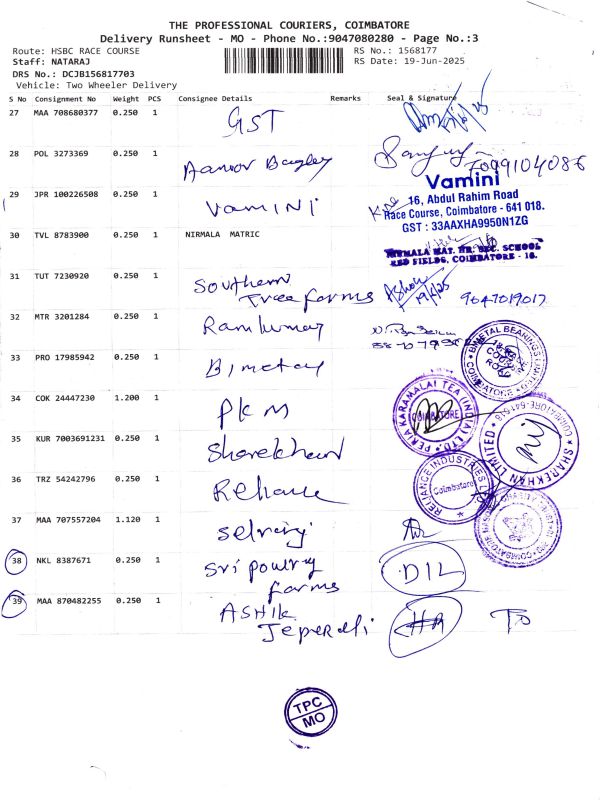 THE PROFESSIONAL COURIERS, COIMBATORE
Delivery Runsheet - MO - Phone No.:9047080280 - Page No.:3
Route: HSBC RACE COURSE RS No.: 1568177
Staff: NATARAJ RS Date: 19-Jun-2025
DRS No.: DCJB156817703
Vehicle: Two Wheeler Delivery
S No Consignment No Weight PCS Consignee Details Remarks Seal & Signature
27 MAA 708680377 0.250 1 GST
28 POL 3273369 0.250 1 7099104086
29 JPR 100226508 0.250 1 VAMINI
Vamini
16, Abdul Rahim Road
Race Course, Coimbatore - 641 018.
GST : 33AAXHA9950N1ZG
30 TVL 8783900 0.250 1 NIRMALA MATRIC
NIRMALA MAT. HR. SEC. SCHOOL
RED FIELDS, COIMBATORE - 18.
31 TUT 7230920 0.250 1 Southern
Tree farms 19/6/25 9047019017
32 MTR 3201284 0.250 1 Ramkumar
33 PRO 17985942 0.250 1 Bimetal
BIMETAL BEARINGS
COIMBATORE
34 COK 24447230 1.200 1 PKM
PERIA KARAMALAI TEA (INDIA) LTD.
COIMBATORE
35 KUR 7003691231 0.250 1 Sharekhan
SHAREKHAN LIMITED
36 TRZ 54242796 0.250 1 Reliance
RELIANCE INDUSTRIES
Coimbatore
37 MAA 707557204 1.120 1
38 NKL 8387671 0.250 1 Sri poultry
farms DIL
39 MAA 870482255 0.250 1 ASHIK
TO
TPC
MO